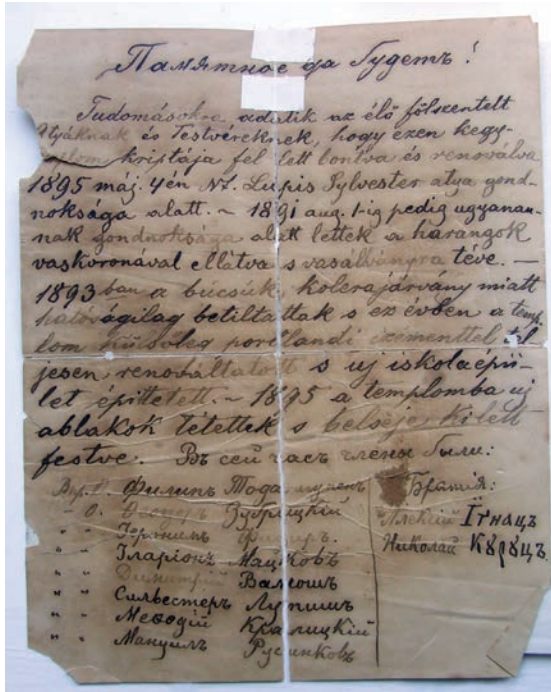 Памятное да будетъ!
Tudomásokra adatik az élő fölszentelt
Atyáknak és Testvéreknek, hogy ezen kegy-
kriptája fel lett bontva és renoválva
1895 máj. 4én Nt. Lupis Sylvester atya gond-
noksága alatt. ~ 1891 aug. 1-ig pedig ugyanan-
nak gondnoksága alatt lettek a harangok
vaskoronával ellátva s vasálványra téve. —
1893 ban a búcsúk, kolerajárvány miatt
hatóságilag betiltattak s ez évben a temp-
lom külsőleg portlandi czémenttel tel-
jesen renováltatott s uj iskolaépü-
let építtetett. ~ 1895 a templomba uj
ablakok tétettek s belseje ki lett
festve. Въ сей часъ члены были:
О. Филипъ
" О. Ѳеодоръ Зубрицкій
" "
" " Іларіонъ Мацковъ
" " Димитрій Вамошъ
" " Сильвестеръ Лупишъ
" " Меѳодій Кралицкій
" " Мануилъ Русинковъ
Братія:
Алексій Їгнацъ
Николай Куруцъ.